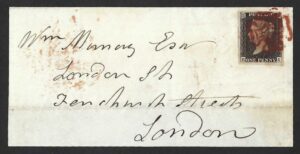 Wm Murray Esqr
London St
Fenchurch Street
London
POSTAGE
ONE PENNY